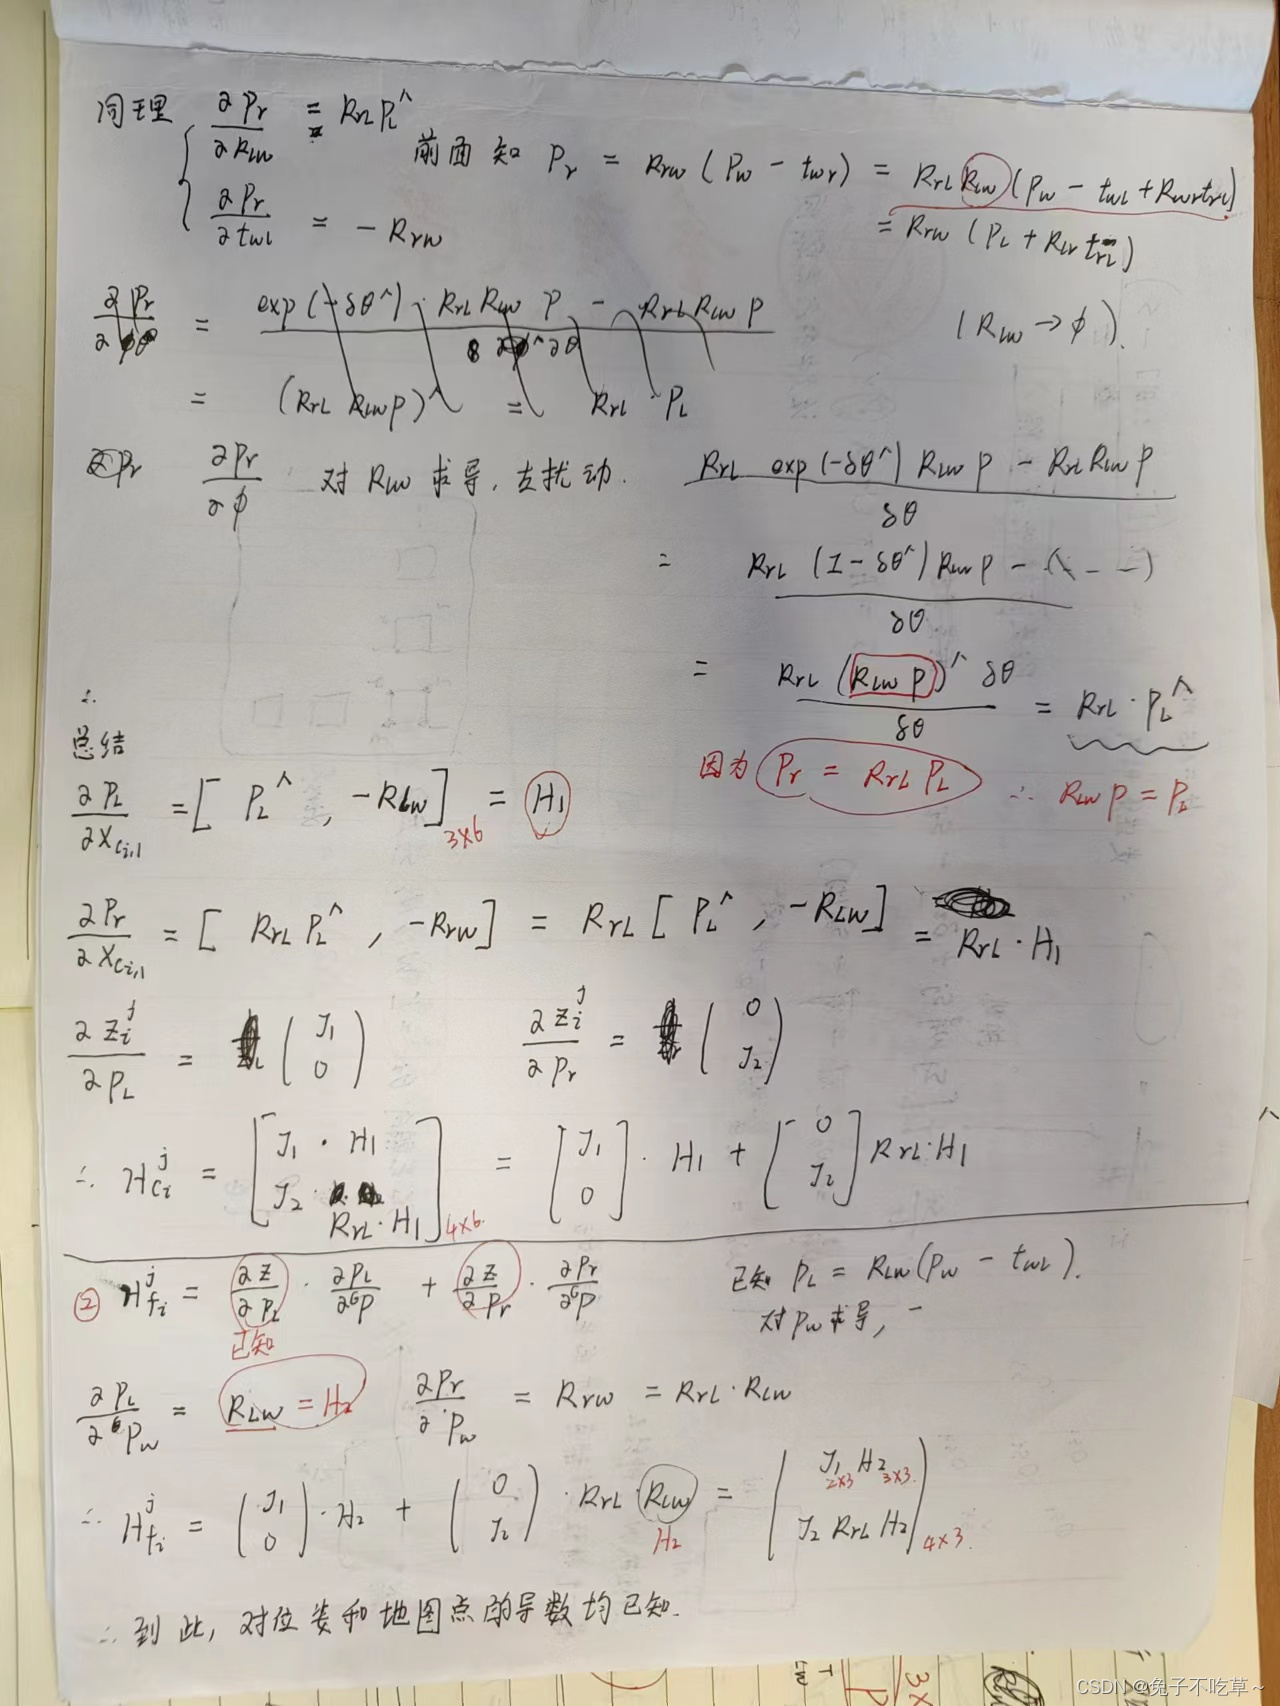 同理 { ∂Pr/∂RLW = RrL PL^
∂Pr/∂twL = -Rrw
前面知 Pr = Rrw (Pw - twr) = RrL RLW (Pw - twL + Rwr trL)
= Rrw (PL + RLr trL)
∂Pr/∂θ = (exp(-δθ^) · RrL RLW P - RrL RLW P) / ∂θ (RLW → φ).
= (RrL RLW P)^ = RrL PL
∂Pr/∂φ 对 RLW 求导, 左扰动. (RrL exp(-δθ^) RLW P - RrL RLW P) / δθ
= (RrL (I - δθ^) RLW P - (- - -)) / δθ
= (RrL (RLW P)^ δθ) / δθ = RrL · PL^
因为 Pr = RrL PL ∴ RLW P = PL
∴
总结
∂PL/∂XCi,1 = [ PL^ , -RLW ] 3×6 = H1
∂Pr/∂XCi,1 = [ RrL PL^ , -Rrw ] = RrL [ PL^ , -RLW ] = RrL · H1
∂Zi^j/∂PL = ( J1 0 ) ∂Zi^j/∂Pr = ( 0 J2 )
∴ HCi^j = [ J1 · H1 J2 · RrL · H1 ] 4×6 = [ J1 0 ] · H1 + [ 0 J2 ] RrL · H1
② Hfi^j = ∂Z/∂PL · ∂PL/∂GP + ∂Z/∂Pr · ∂Pr/∂GP 已知 PL = RLW (Pw - twL).
已知 对 Pw 求导, -
∂PL/∂GPw = RLW = H2 ∂Pr/∂Pw = Rrw = RrL · RLW
∴ Hfi^j = ( J1 0 ) · H2 + ( 0 J2 ) · RrL · RLW = ( J1 H2 J2 RrL H2 ) 4×3
2×3 3×3 H2
∴ 到此, 对位姿和地图点的导数均已知.
CSDN @兔子不吃草~